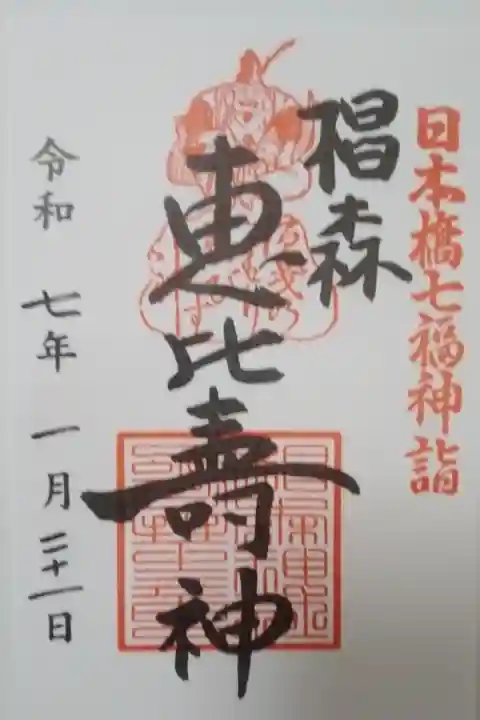 日本橋七福神詣
椙森
恵比壽神
令和 七年 一月 二十一日